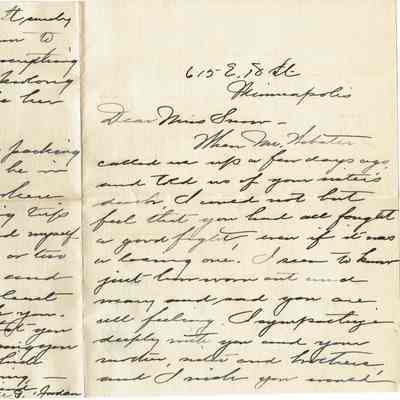 615 E. 18 St
Minneapolis
Dear Miss Snow -
When Mr. Webster
called us up a few days ago
and told us of your sister's
death, I could not but
feel that you had all fought
a good fight, even if it was
a losing one. I seem to know
just how worn out and
weary and sad you are
all feeling. I sympathize
deeply with you and your
mother, sister and brothers
and I wish you would
surely
to
her
packing
he in
trip
myself
or two
and
least
you.
you